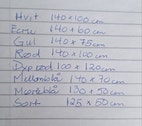 Hvit 140x100 cm
Ecru 140x60 cm
Gul 140x75cm
Rød 140x100 cm
Dyp rød 100x120cm
Mellomblå 140x70 cm
Mørkblå 130x50cm
Sort 125x50cm